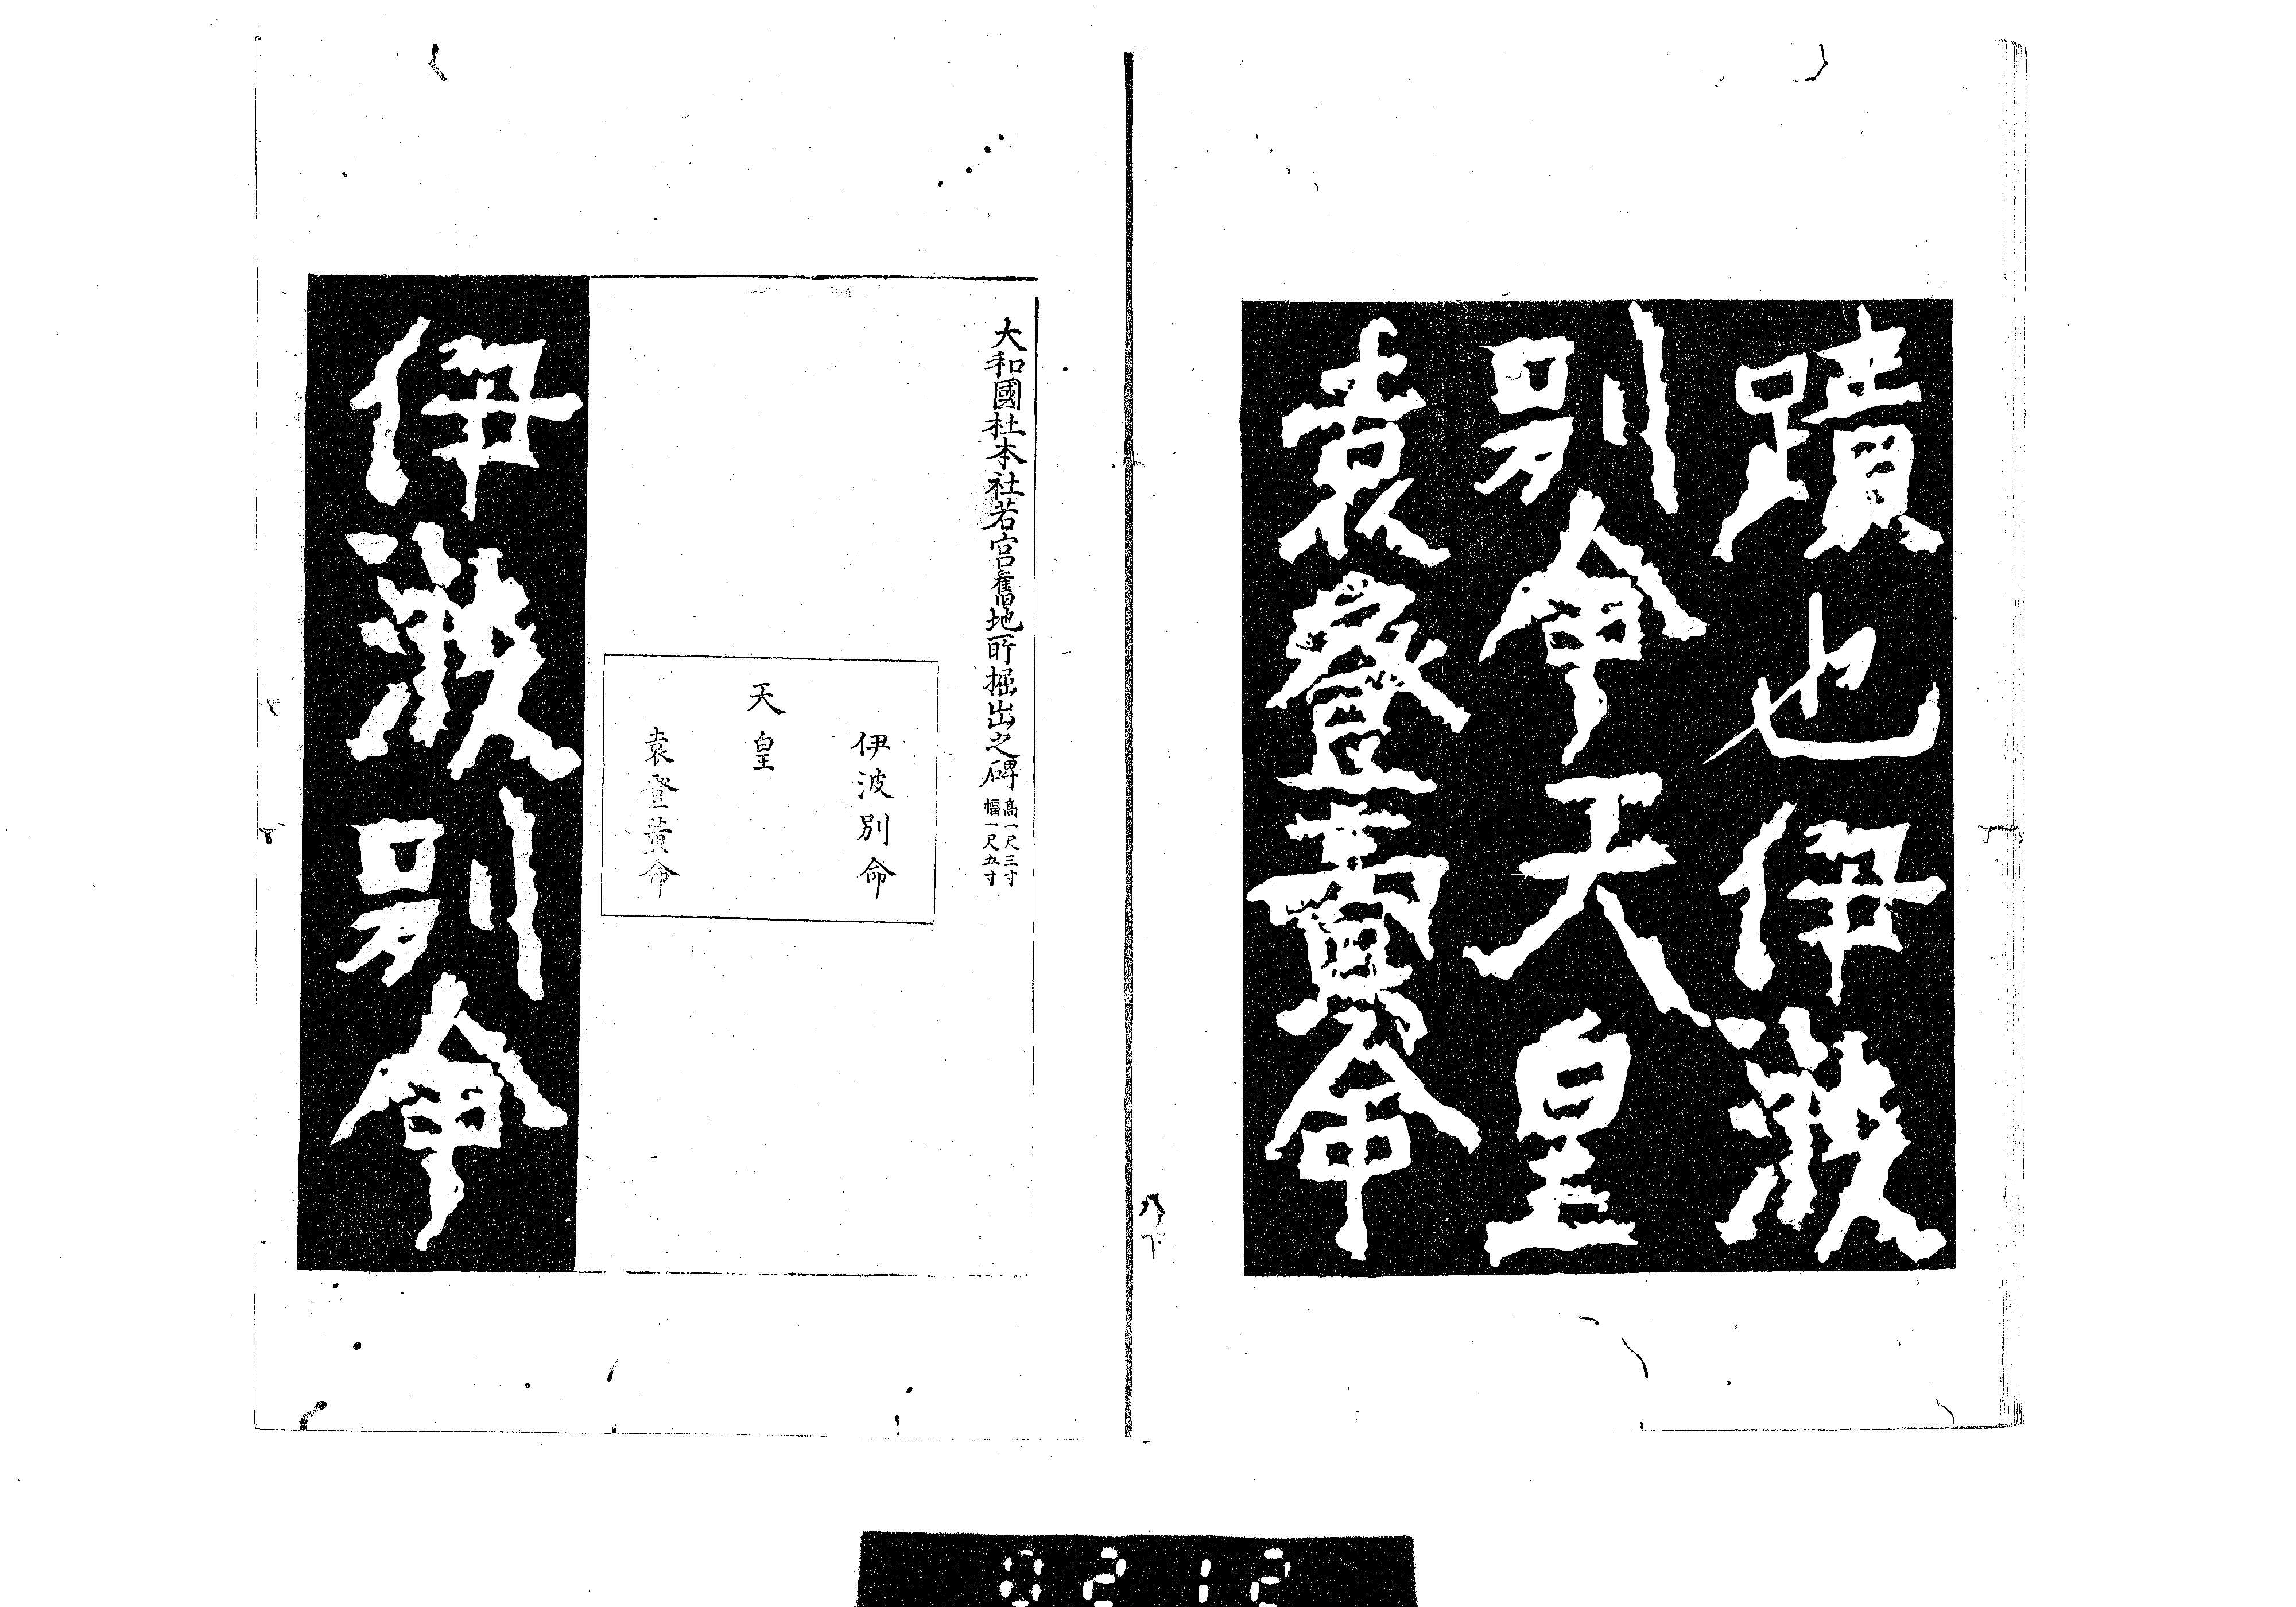 蹟也伊波
別命天皇
袁登黄命
八下
大和國杜本社若宮舊地所掘出之碑
高一尺三寸
幅一尺五寸
伊波別命
天皇
袁登黄命
伊波別命
0212